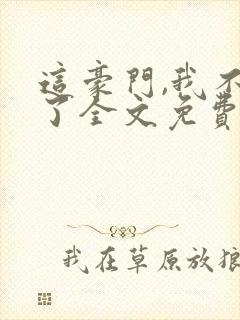 這豪門,我不
了全文免費
我在草原放狼